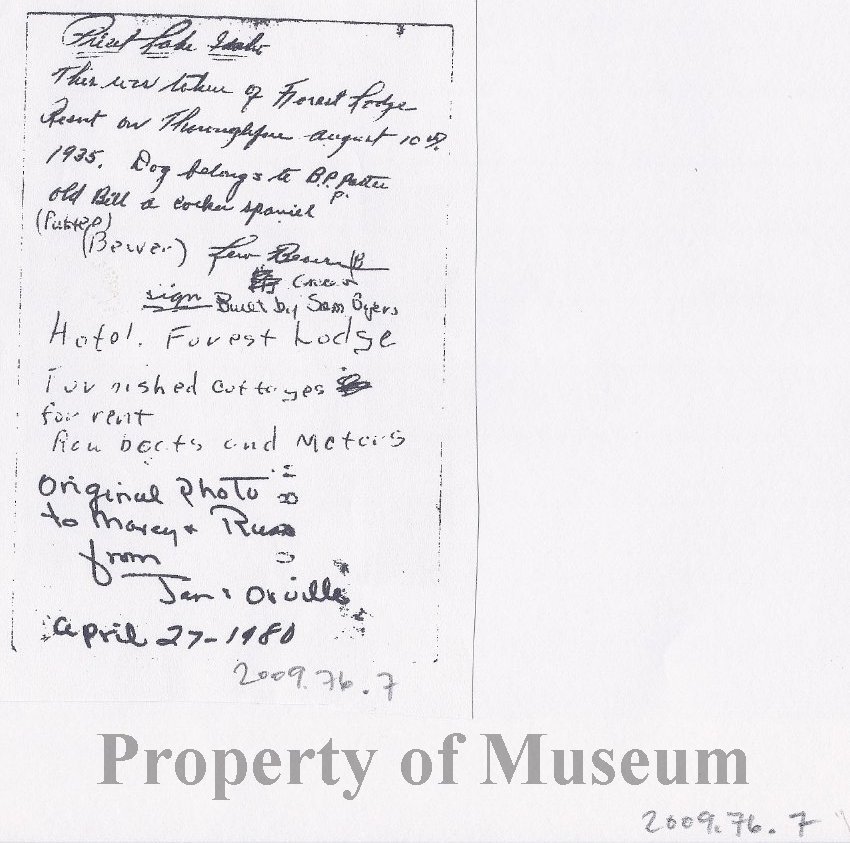 Priest Lake Idaho
This was taken of Forest Lodge
Resort on Thoroughfare august 10th
1935. Dog belongs to B.P.
old Bill a cocker spaniel P.
(Beaver) Lew
sign Built by Sam Byers
Hotel. Forest Lodge
Furnished cottages
for rent
Row boats and Motors
Original Photo
to Marcy & Russ
from
Jan & Orville
april 27-1980
2009.76.7
Property of Museum
2009.76.7